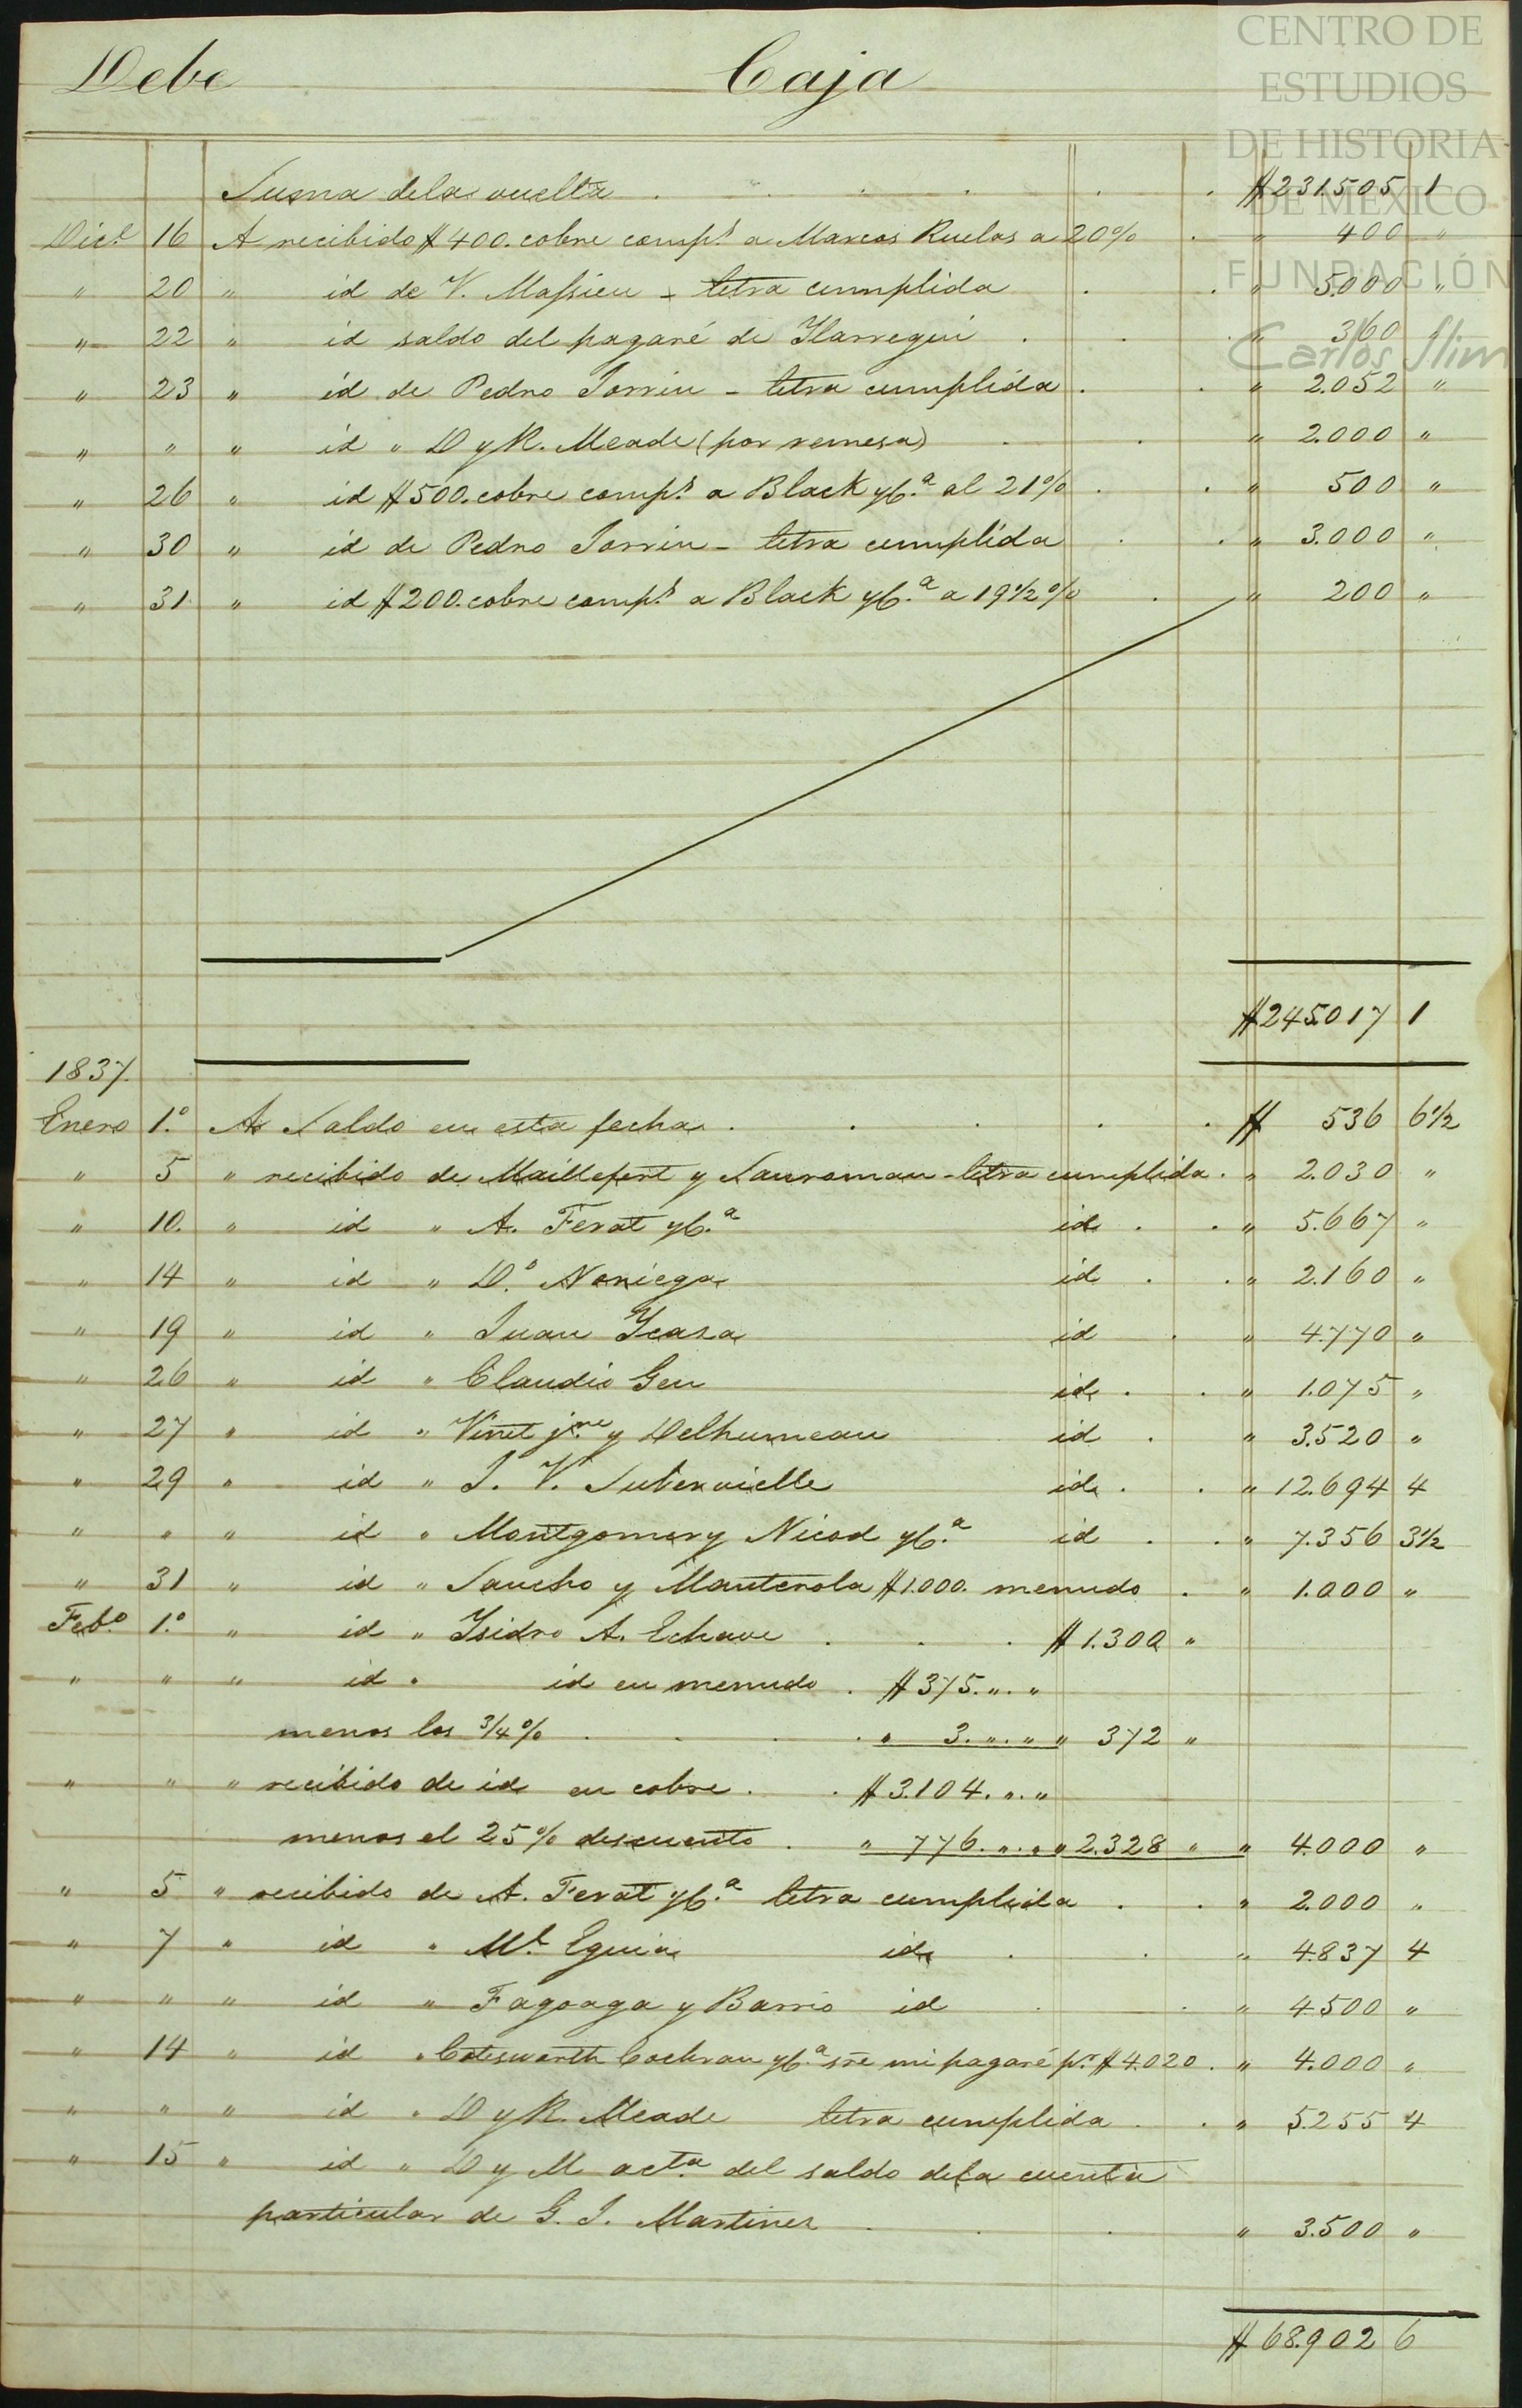 CENTRO DE
ESTUDIOS
DE HISTORIA
DE MÉXICO
FUNDACIÓN
Carlos Slim
Debe Caja
Suma dela vuelta . . . . . . $231.505 1
Dice. 16 A recibido $400. cobre comps. a Marcos Ruelas a 20% . " 400 "
" 20 " id de V. Massieu - letra cumplida . . " 5.000 "
" 22 " id saldo del pagaré de Ylarregui . . . " 360 "
" 23 " id de Pedro Jorrin - letra cumplida . . " 2.052 "
" " " id " D y R. Meade (por remesa) . . " 2.000 "
" 26 " id $500. cobre comps. a Black yCa. al 21% . . " 500 "
" 30 " id de Pedro Jorrin - letra cumplida . . " 3.000 "
" 31 " id $200. cobre comps. a Black yCa. a 19½% . " 200 "
$245.017 1
1837.
Enero 1.º A Saldo en esta fecha . . . . . $ 536 6½
" 5 " recibido de Maillefert y Sauroman - letra cumplida . " 2.030 "
" 10. " id " A. Ferat yCa. id . . " 5.667 "
" 14 " id " Do. Noriega id . . " 2.160 "
" 19 " id " Juan Ycasa id . " 4.770 "
" 26 " id " Claudio Gen id . . " 1.075 "
" 27 " id " Vinet jne. y Delhumeau id . " 3.520 "
" 29 " id " J. V. Subervielle id . . " 12.694 4
" " " id " Montgomery Nicod yCa. id . . " 7.356 3½
" 31 " id " Sancho y Manterola $1.000. menudo . " 1.000 "
Febo. 1.º " id " Ysidro A. Echave . . $1.300 "
" " " id " id en menudo . $375. ". "
menos los ¾% . . . . " 3. ". " " 372 "
" " " recibido de id en cobre . . $3.104. ". "
menos el 25% descuento . " 776. ". " " 2.328 " " 4.000 "
" 5 " recibido de A. Ferat yCa. letra cumplida . . " 2.000 "
" 7 " id " Ml. Eguia id . . " 4.837 4
" " " id " Fagoaga y Barrio id . . " 4.500 "
" 14 " id " Cotesworth Cochran yCa. sre mi pagaré pr. $4.020 . " 4.000 "
" " " id " D y R. Meade letra cumplida . . " 5.255 4
" 15 " id " D y M acta. del saldo dela cuenta
particular de G. J. Martinez . . . " 3.500 "
$68.902 6